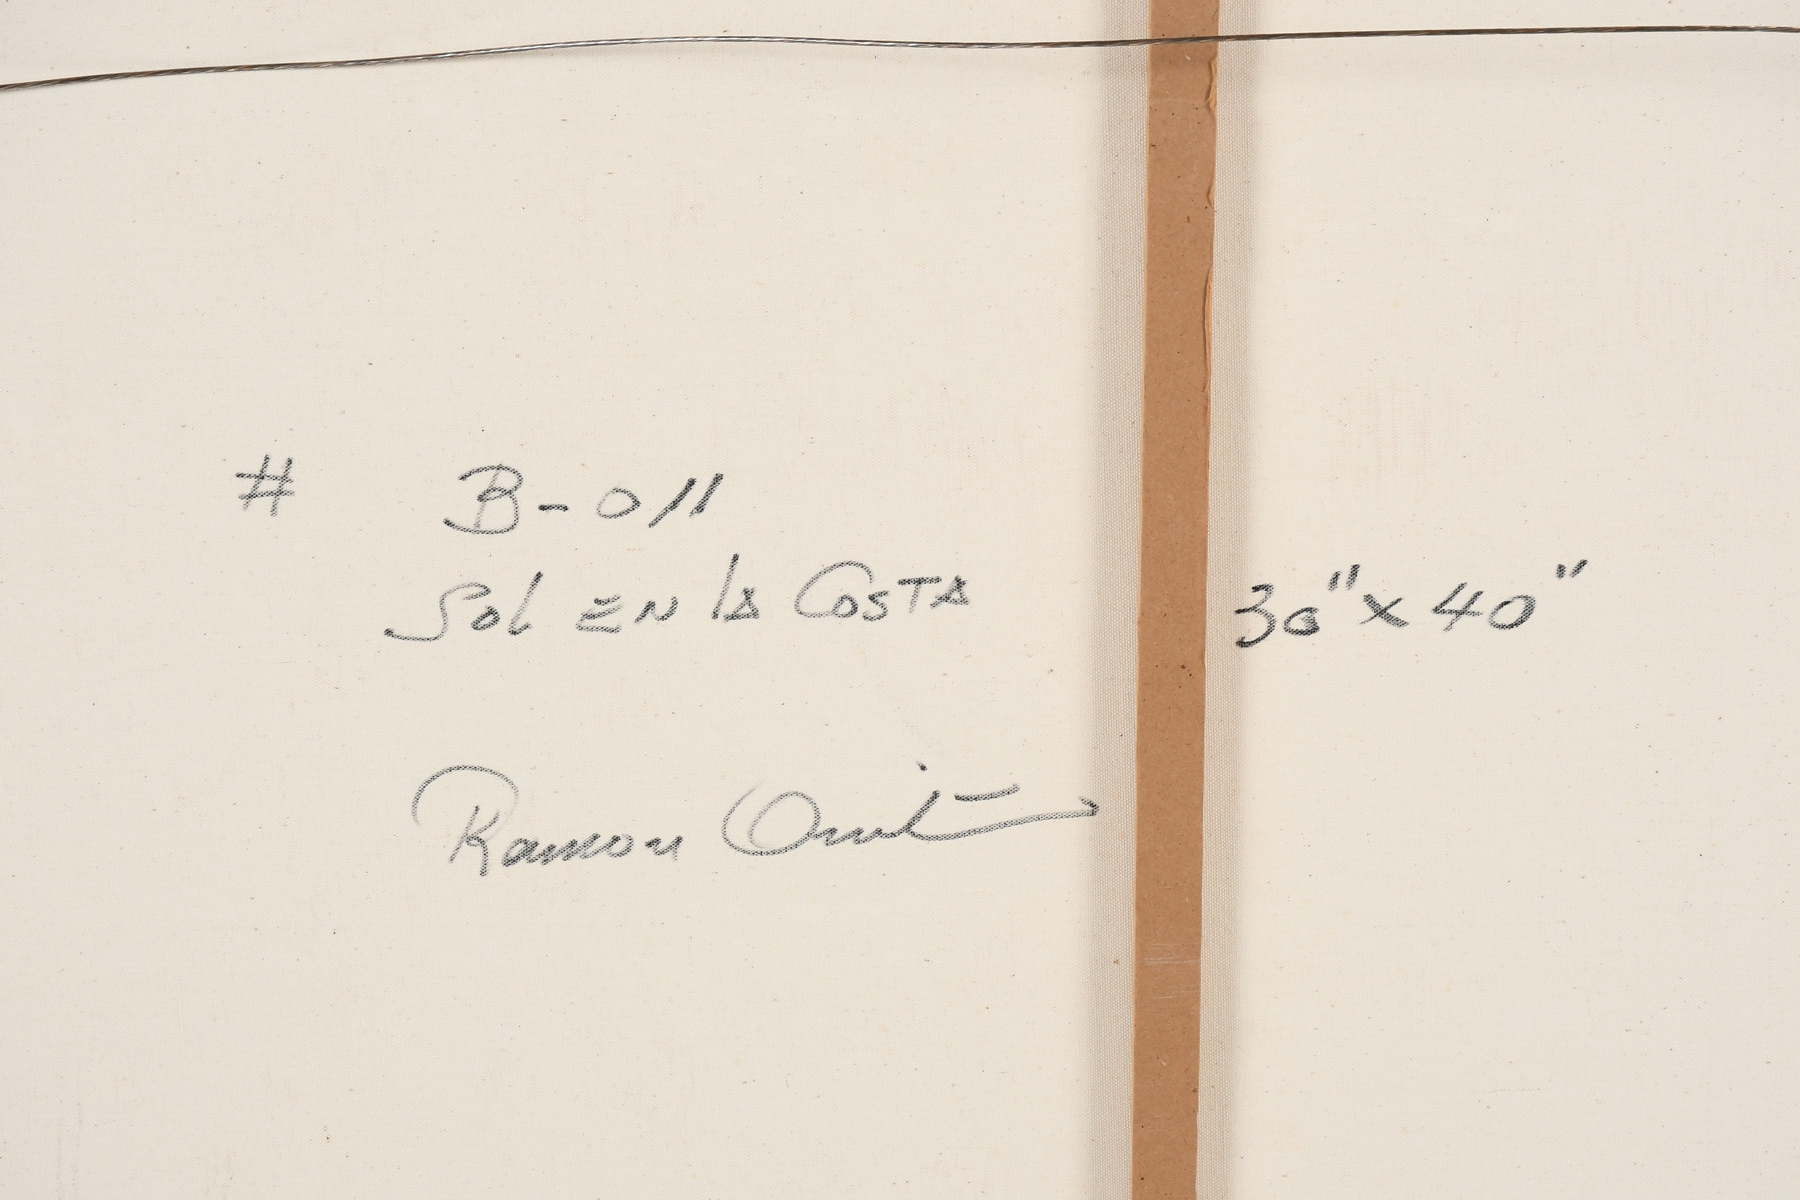 # B-011
Sol EN la COSTA 30" x 40"
Ramon